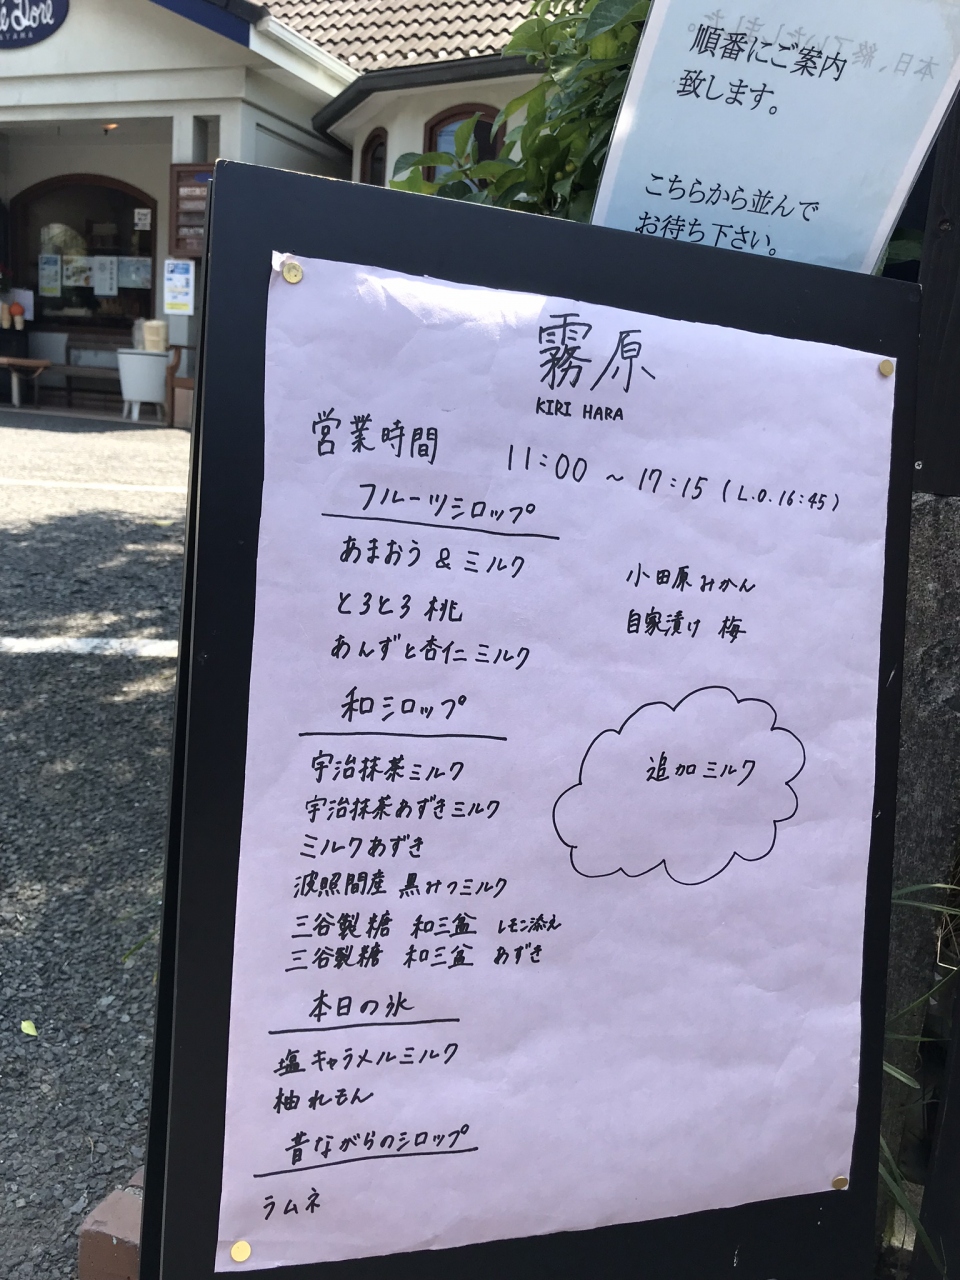 順番にご案内
致します。
こちらから並んで
お待ち下さい。
本日、終了いたしました。
霧原
KIRI HARA
営業時間 11:00 ~ 17:15 (L.O. 16:45)
フルーツシロップ
あまおう & ミルク
とろとろ 桃
あんずと杏仁ミルク
小田原みかん
自家漬け 梅
和シロップ
宇治抹茶ミルク
宇治抹茶あずきミルク
ミルクあずき
波照間産 黒みつミルク
三谷製糖 和三盆 レモン添え
三谷製糖 和三盆 あずき
追加ミルク
本日の氷
塩キャラメルミルク
柚れもん
昔ながらのシロップ
ラムネ